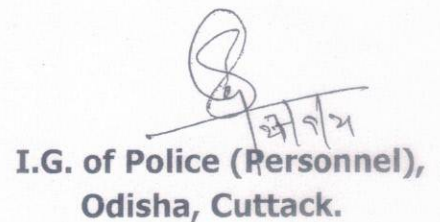 I.G. of Police (Personnel),
Odisha, Cuttack.